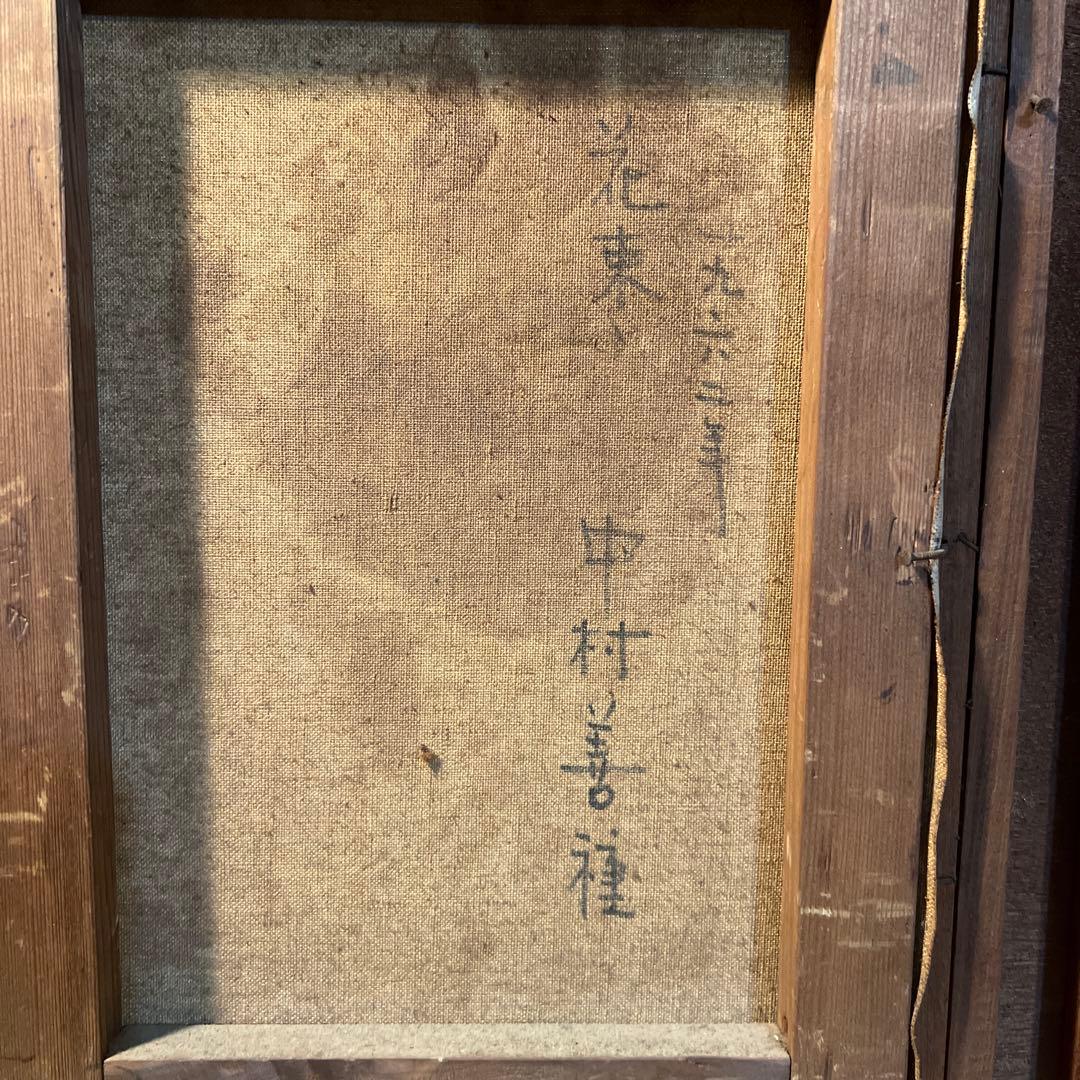 一九六年
花束 中村善種